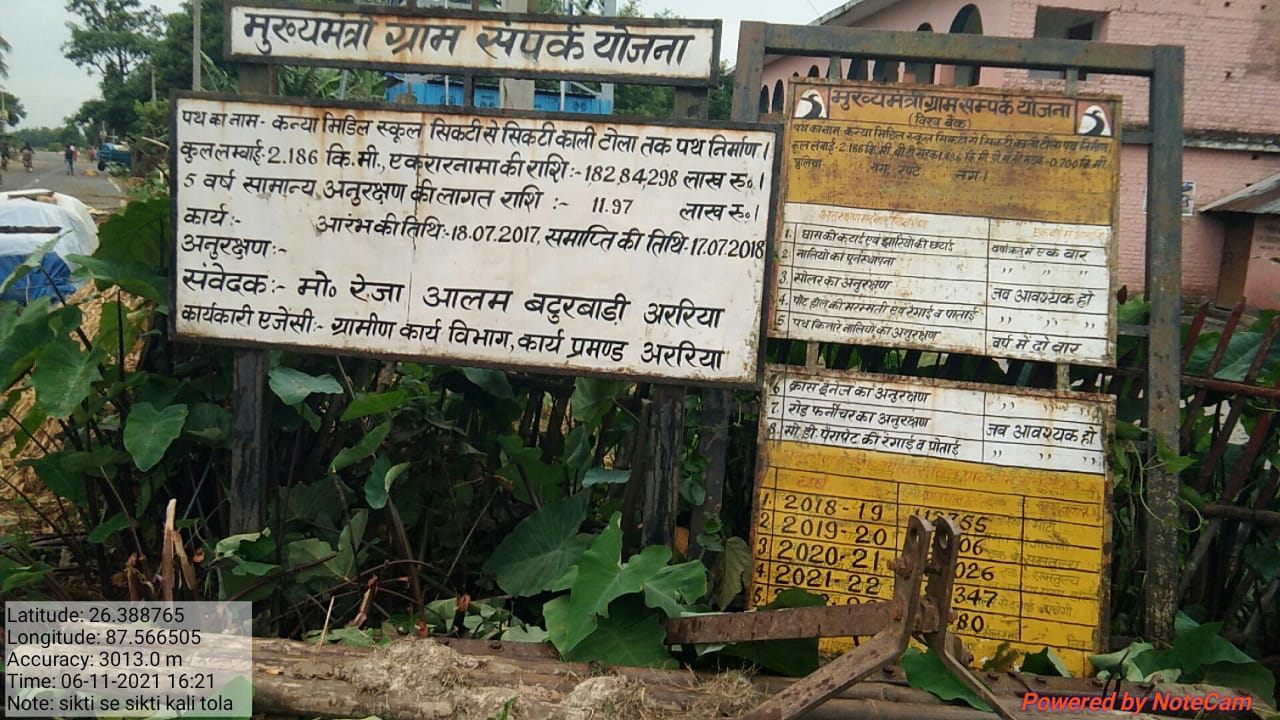 मुख्यमंत्री ग्राम संपर्क योजना
पथ का नाम - कन्या मिडिल स्कूल सिकटी से सिकटी काली टोला तक पथ निर्माण।
कुल लम्बाई:- 2.186 कि.मी., एकरारनामा की राशि:- 182,84,298 लाख रु०।
5 वर्ष सामान्य अनुरक्षण की लागत राशि :- 11.97 लाख रु०।
कार्य:- आरंभ की तिथि:-18.07.2017, समाप्ति की तिथि:-17.07.2018
अनुरक्षण:-
संवेदक:- मो० रेजा आलम बदुरबाड़ी अररिया
कार्यकारी एजेंसी:- ग्रामीण कार्य विभाग, कार्य प्रमण्ड अररिया
मुख्यमंत्री ग्राम सम्पर्क योजना
(विश्व बैंक)
पथ का नाम:- कन्या मिडिल स्कूल सिकटी से सिकटी काली टोला पथ निर्माण
कुल लम्बाई- 2.186 कि.मी. बी.टी सड़क 1.486 कि.मी. 0.700 कि.मी.
पुलिया नग, रपटे नग।
1. घास की कटाई एवं झारियो की छटाई वर्षा ऋतु में एक बार
2. नालियों का पुर्नस्थापना ,, ,, ,,
3. सोलर का अनुरक्षण जब आवश्यक हो
4. पोट होल की मरम्मती एवं रंगाई व पोताई ,, ,, ,,
5. पथ किनारे नालियों का अनुरक्षण वर्ष में दो बार
6. क्रास ड्रेनेज का अनुरक्षण ,, ,, ,,
7. रोड फर्नीचर का अनुरक्षण जब आवश्यक हो
8. सी.डी. पैरापेट की रंगाई व पोताई ,, ,, ,,
वर्ष
1. 2018-19
2 2019-20 06
3 2020-21 026
4. 2021-22 347
5. 80
Latitude: 26.388765
Longitude: 87.566505
Accuracy: 3013.0 m
Time: 06-11-2021 16:21
Note: sikti se sikti kali tola
Powered by NoteCam